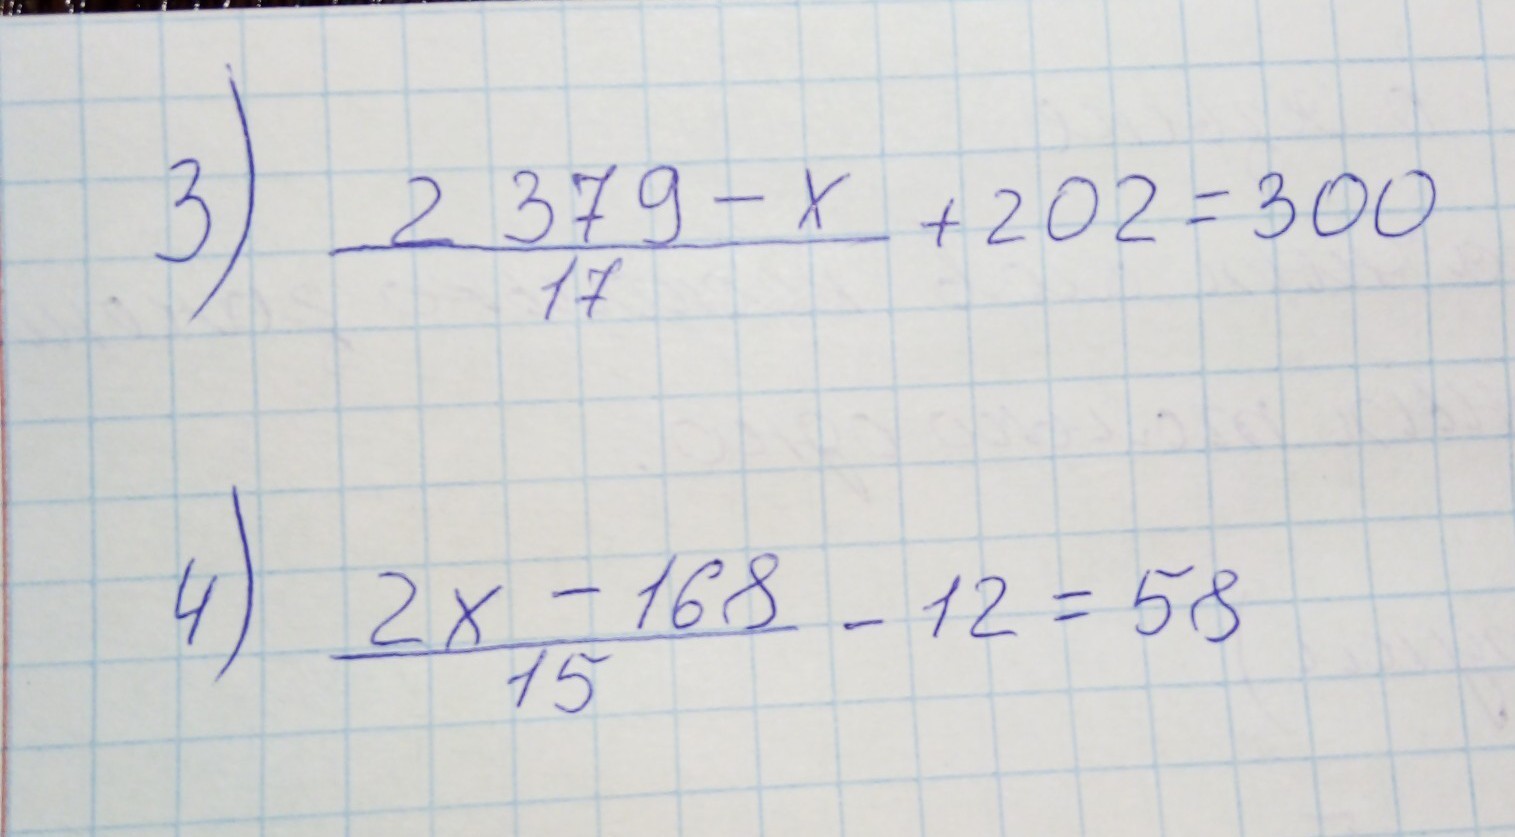 3) 2 379 - x + 202 = 300
17
4) 2x - 168 - 12 = 58
15